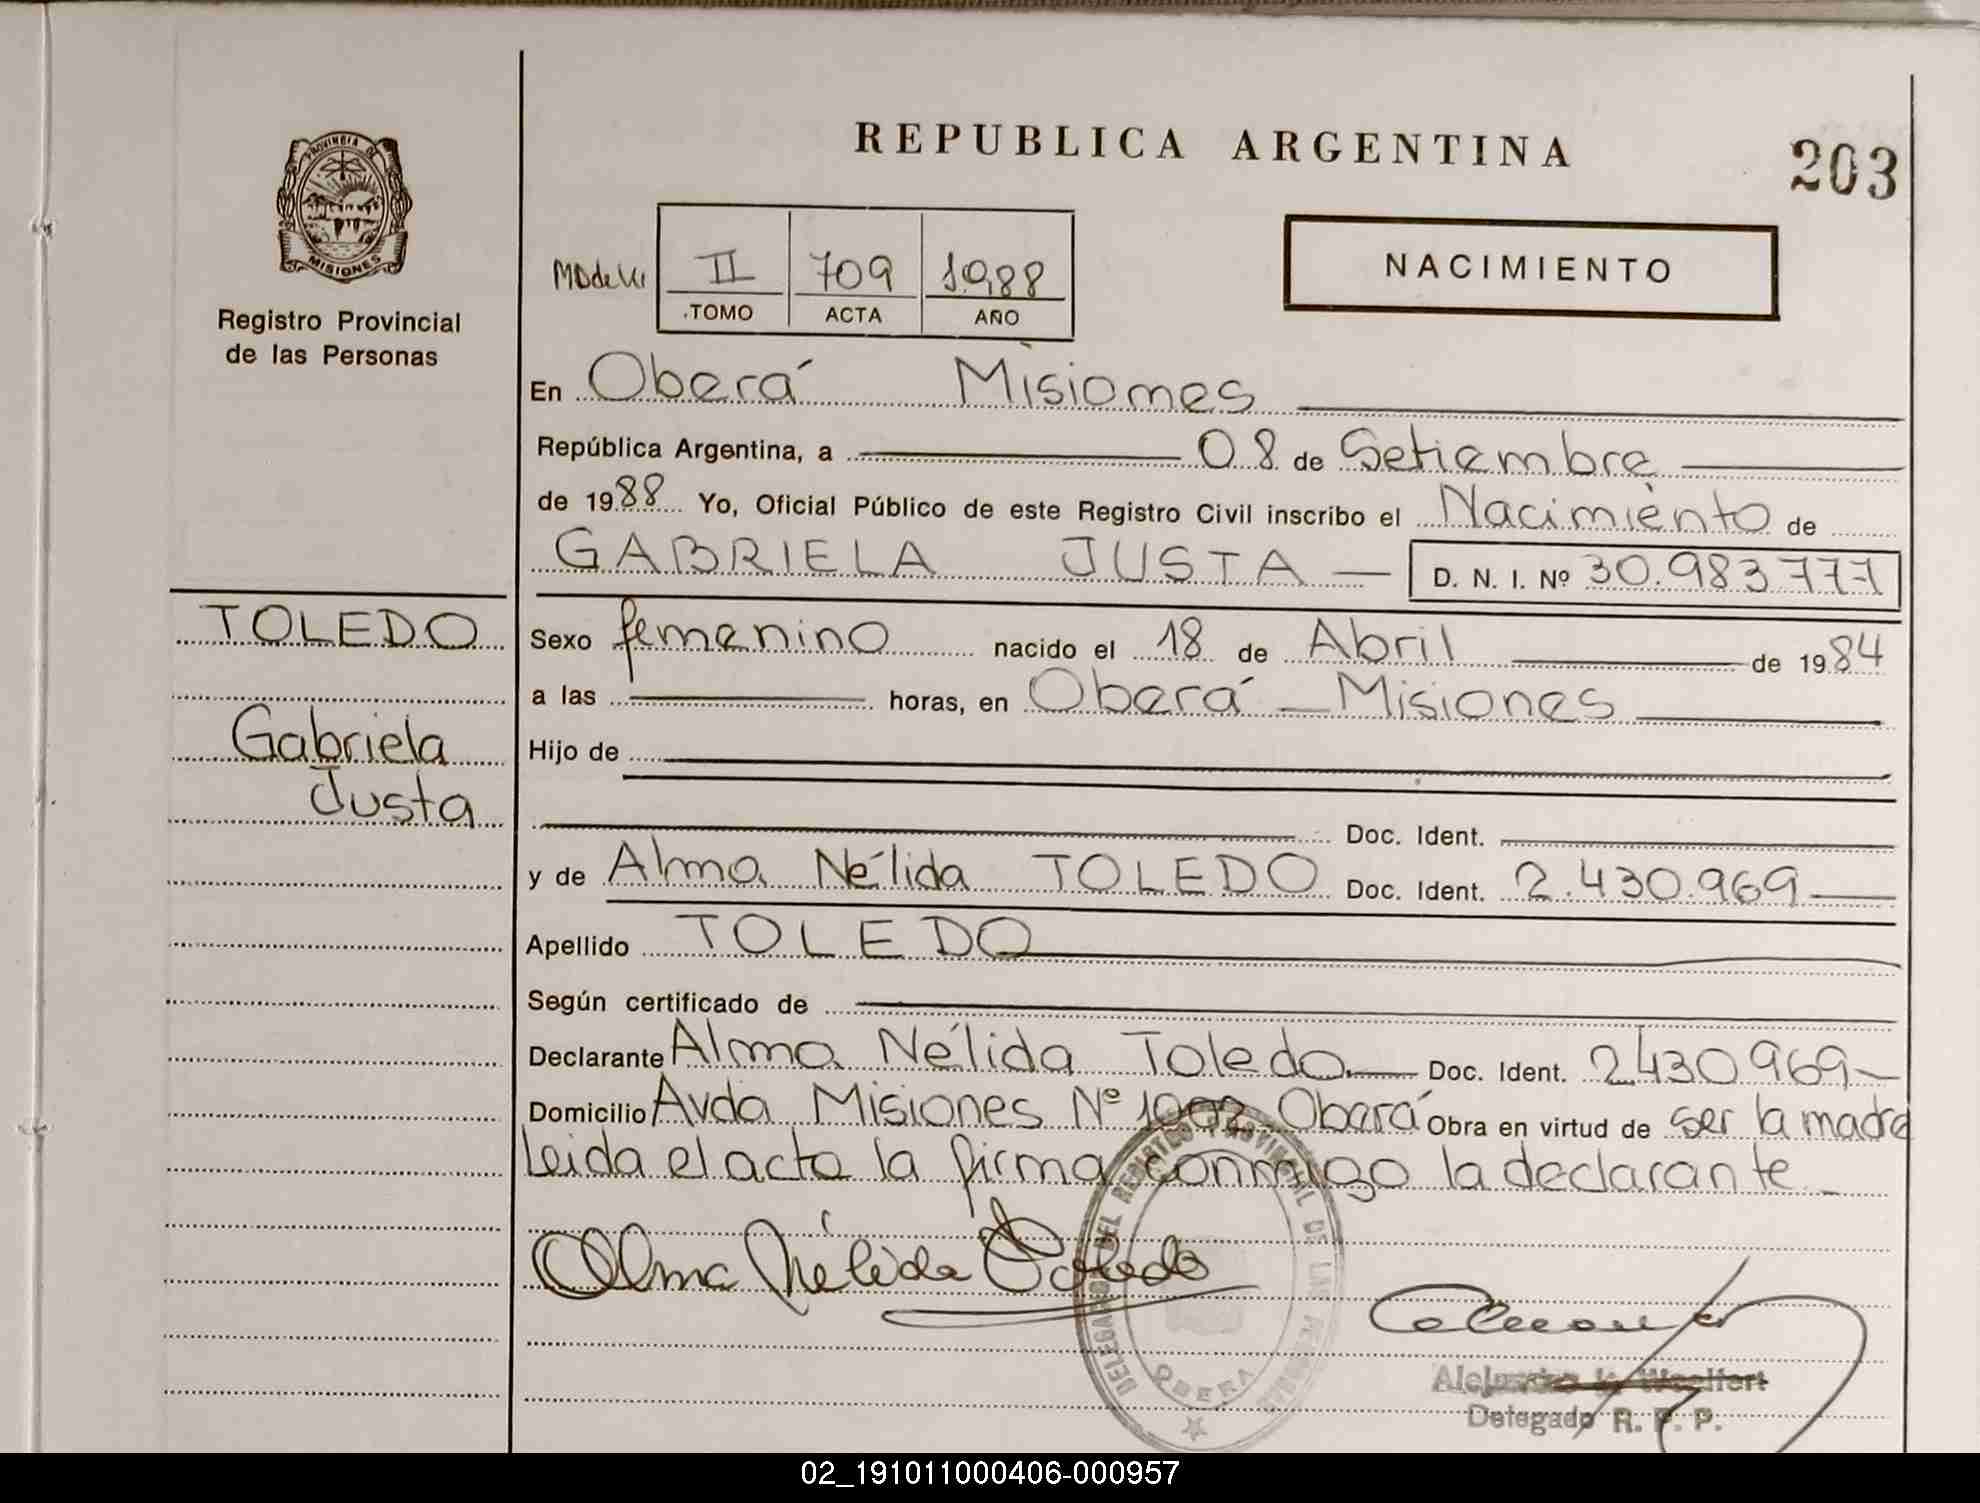 REPUBLICA ARGENTINA
203
PROVINCIA DE
MISIONES
Registro Provincial
de las Personas
II 709 1988
TOMO ACTA AÑO
NACIMIENTO
En Oberá Misiones
República Argentina, a 08 de Setiembre
de 1988 Yo, Oficial Público de este Registro Civil inscribo el Nacimiento de
GABRIELA JUSTA — D. N. I. Nº 30.983.777
TOLEDO
Gabriela
Justa
Sexo femenino nacido el 18 de Abril de 1984
a las horas, en Oberá - Misiones
Hijo de
Doc. Ident.
y de Alma Nélida TOLEDO Doc. Ident. 2.430.969
Apellido TOLEDO
Según certificado de
Declarante Alma Nélida Toledo Doc. Ident. 2430969-
Domicilio Avda Misiones Nº 1002 Oberá Obra en virtud de ser la madre
Leida el acta la firma conmigo la declarante
Alma Nélida Toledo
DELEGACION DEL REGISTRO PROVINCIAL DE LAS PERSONAS
OBERA
Delegado R. P. P.
02_191011000406-000957